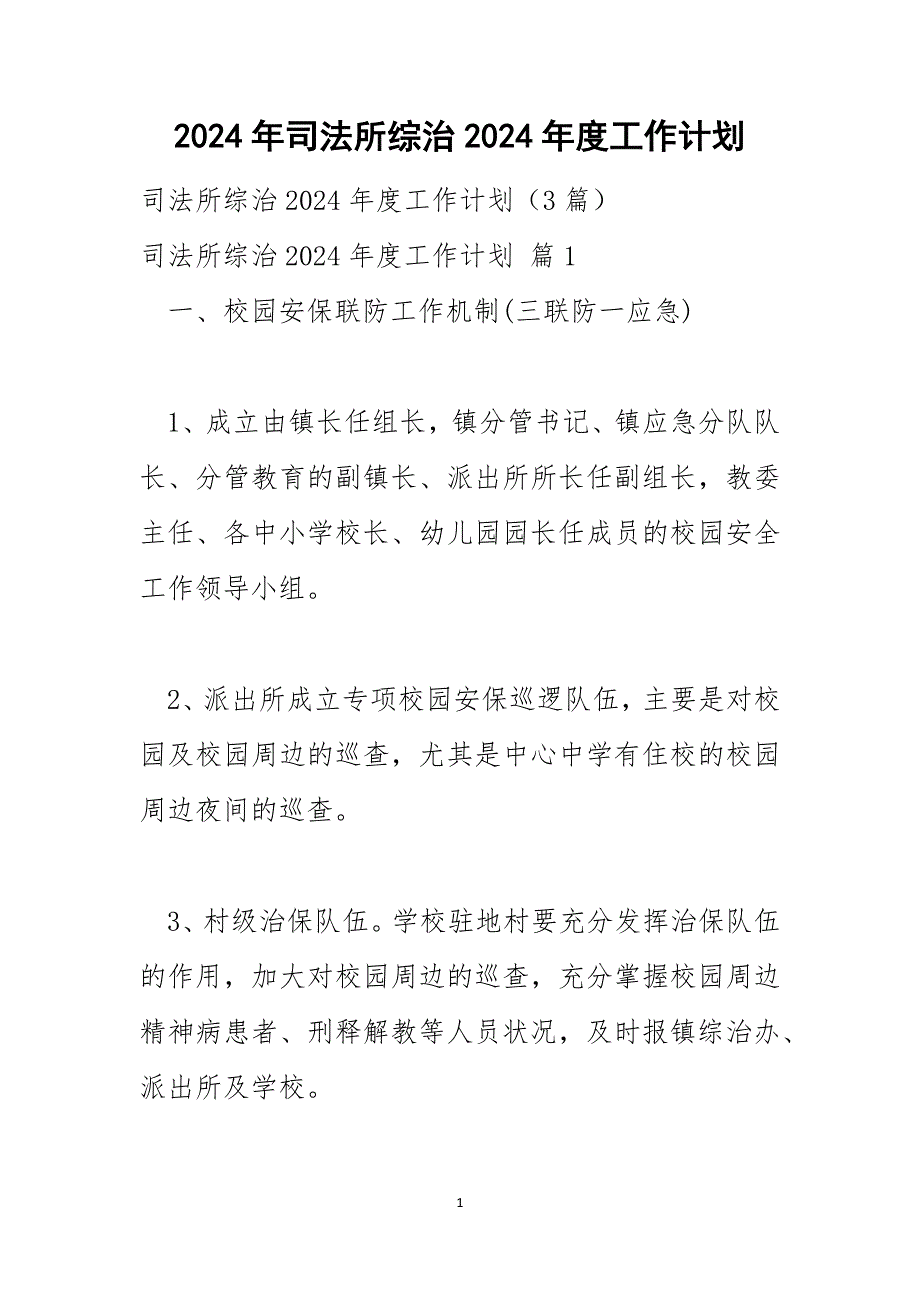 2024年司法所综治2024年度工作计划
司法所综治2024年度工作计划（3篇）
司法所综治2024年度工作计划 篇1
一、校园安保联防工作机制(三联防一应急)
1、成立由镇长任组长，镇分管书记、镇应急分队队
长、分管教育的副镇长、派出所所长任副组长，教委
主任、各中小学校长、幼儿园园长任成员的校园安全
工作领导小组。
2、派出所成立专项校园安保巡逻队伍，主要是对校
园及校园周边的巡查，尤其是中心中学有住校的校园
周边夜间的巡查。
3、村级治保队伍。学校驻地村要充分发挥治保队伍
的作用，加大对校园周边的巡查，充分掌握校园周边
精神病患者、刑释解教等人员状况，及时报镇综治办、
派出所及学校。
1